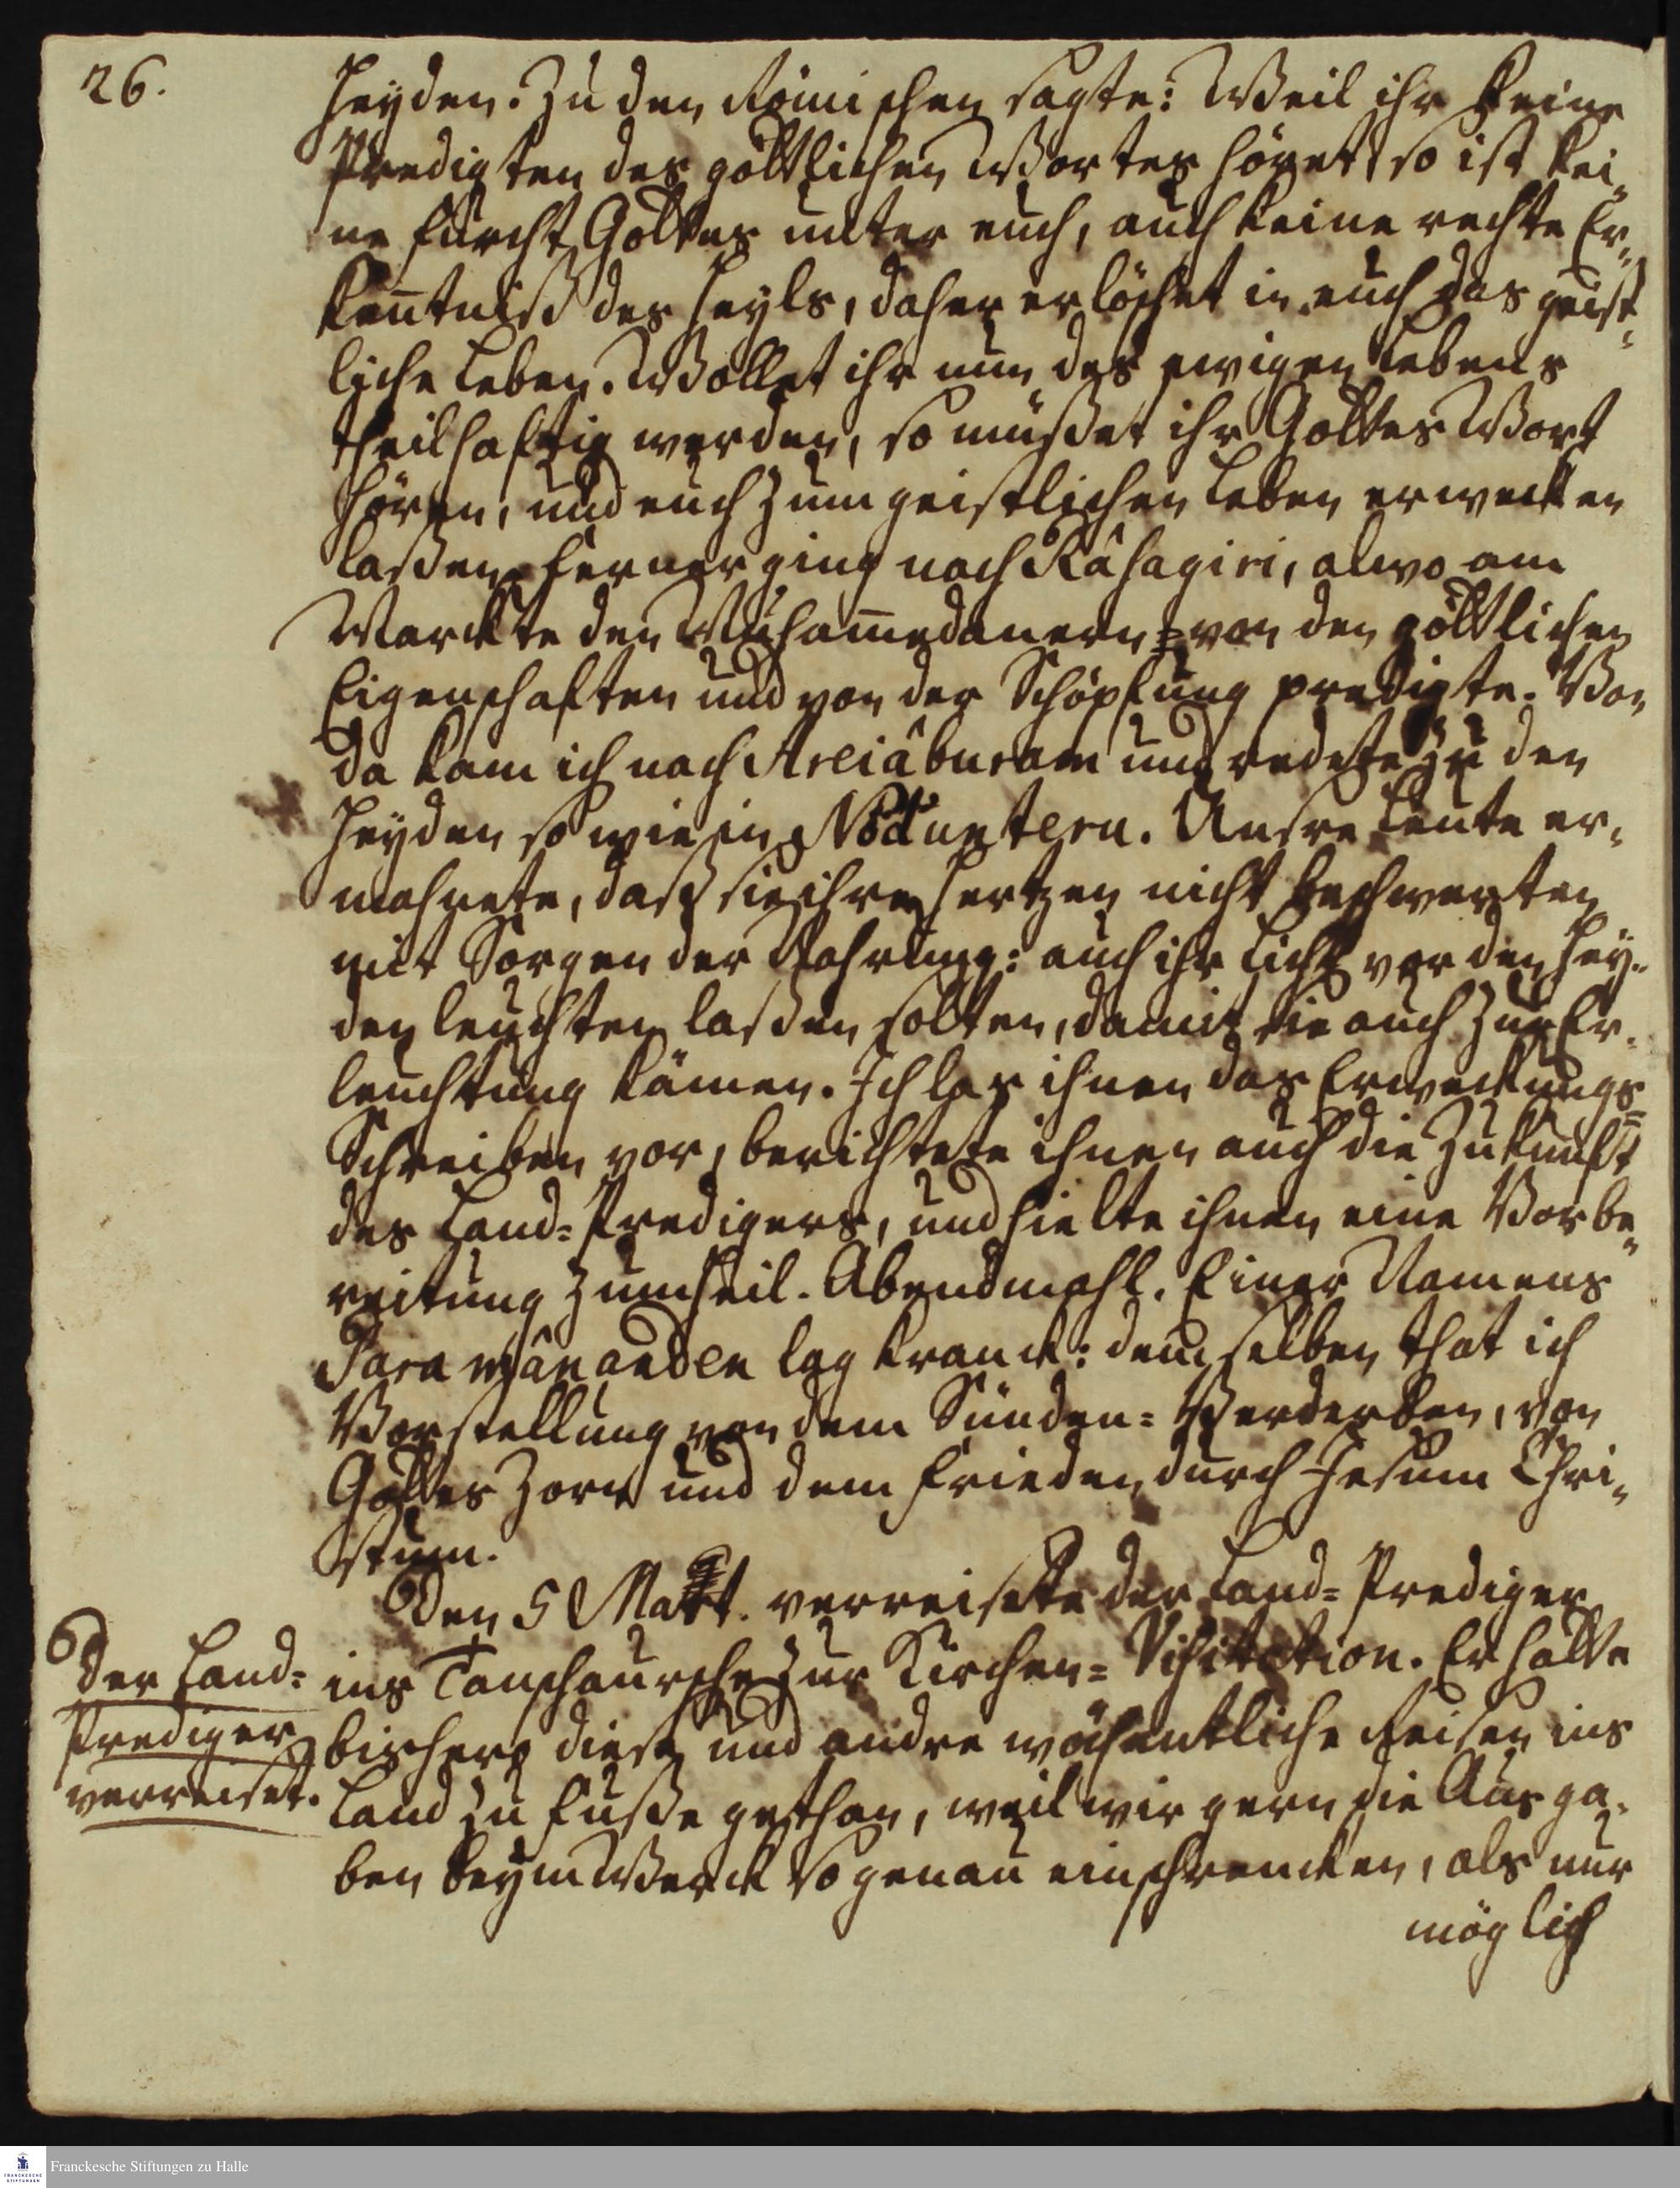 26.
Heyden. Zu den Römischen sagte: Weil ihr keine
Predigten des göttlichen Wortes höret, so ist kei„
ne Furcht Gottes unter euch, auch keine rechte Er„
kentniß des Heyls, daher erlöschet in euch das geist„
liche Leben. Wollet ihr nun des ewigen Lebens
theilhaftig werden, so müßet ihr Gottes Wort
hören, und euch zum geistlichen Leben erwecken
laßen. Ferner ging nach Râsagiri, alwo am
Marckte den Muhammedanern von den göttlichen
Eigenschaften und von der Schöpfung predigte. Von
da kam ich nach Areiâburam und redete zu den
Heyden so wie in. Unsre Leute er„
mahnete, daß sie ihre Hertzen nicht beschwerten
mit Sorgen der Nahrung: auch ihr Licht vor den Hey„
den leuchten laßen solten, damit sie auch zur Er„
leuchtung kämen. Ich las ihnen das Erweckungs=
Schreiben vor, berichtete ihnen auch die Zukunft
des Land=Predigers, und hielte ihnen eine Vorbe„
reitung zum heil. Abendmahl. Einer Namens
Paramânanden lag kranck: demselben that ich
Vorstellung von dem Sünden=Verderben, von
Gottes Zorn und dem Frieden durch Jesum Chri„
stum.
Den 5 verreisete der Land=Prediger
ins Tanschaursche zur Kirchen=Visitation. Er hatte
bishero diese und andre wöchentliche Reisen ins
Land zu Fuße gethan, weil wir gern die Ausga„
ben beym Werck so genau einschrencken, als nur
möglich
Der Land=
Prediger
verreiset.
Franckesche Stiftungen zu Halle